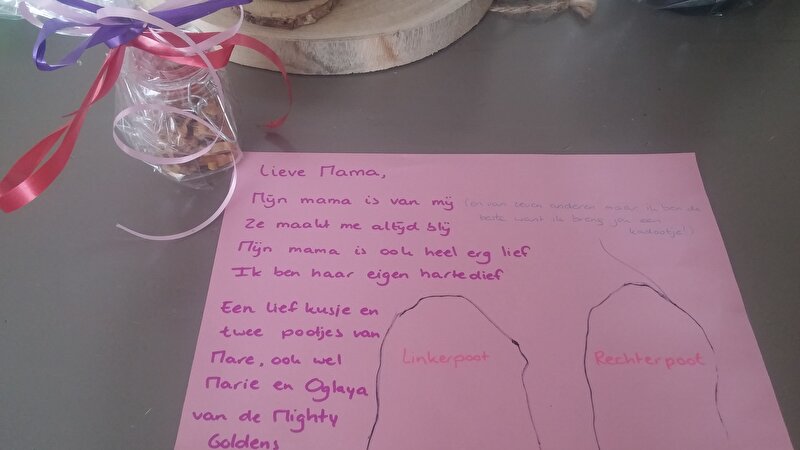 Lieve Mama,
Mijn mama is van mij (en van zeven anderen maar ik ben de
Ze maakt me altijd blij beste want ik breng jou een
kadootje!)
Mijn mama is ook heel erg lief
Ik ben haar eigen hartedief
Een lief kusje en
twee pootjes van
Mare, ook wel
Marie en Oglaya
van de Mighty
Goldens
Linkerpoot
Rechterpoot